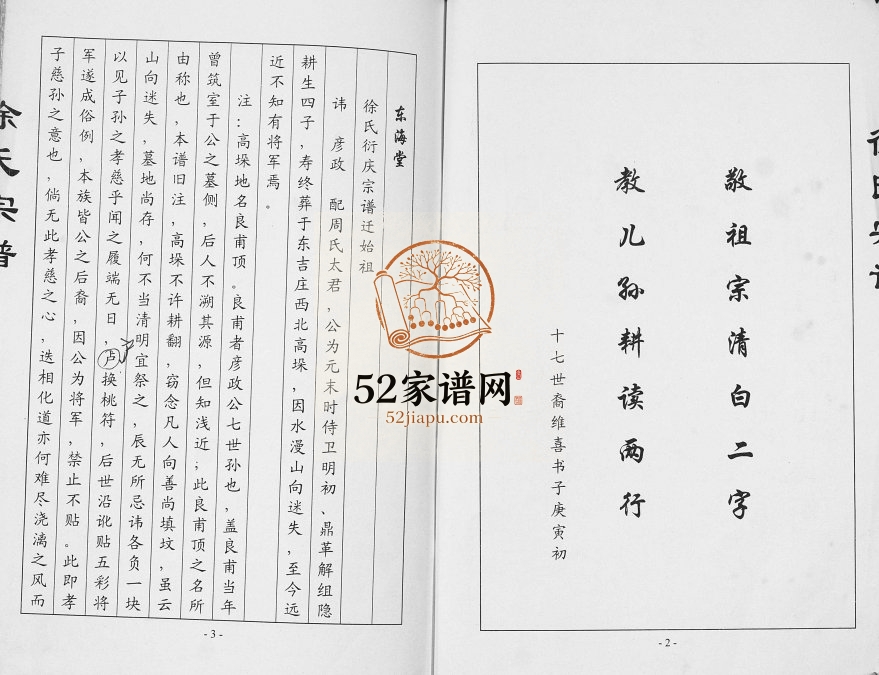 敬祖宗清白二字
教儿孙耕读两行
十七世裔维喜书于庚寅初
- 2 -
东海堂
徐氏衍庆宗谱迁始祖
讳 彦政 配周氏太君，公为元末时侍卫明初、鼎革解组隐
耕生四子，寿终葬于东吉庄西北高垛，因水漫山向迷失，至今远
近不知有将军焉。
注：高垛地名良甫顶。良甫者彦政公七世孙也，盖良甫当年
曾筑室于公之墓侧，后人不溯其源，但知浅近；此良甫顶之名所
由称也，本谱旧注，高垛不许耕翻，窃念凡人向善尚填坟，虽云
山向迷失，墓地尚存，何不当清明宜祭之，辰无所忌讳各负一块
以见子孙之孝慈乎闻之履端无日，卢换桃符，后世沿讹贴五彩将
户
军遂成俗例，本族皆公之后裔，因公为将军，禁止不贴。此即孝
子慈孙之意也，倘无此孝慈之心，迭相化道亦何难尽浇漓之风而
- 3 -
徐氏宗谱
徐氏宗谱
52家谱网
52jiapu.com